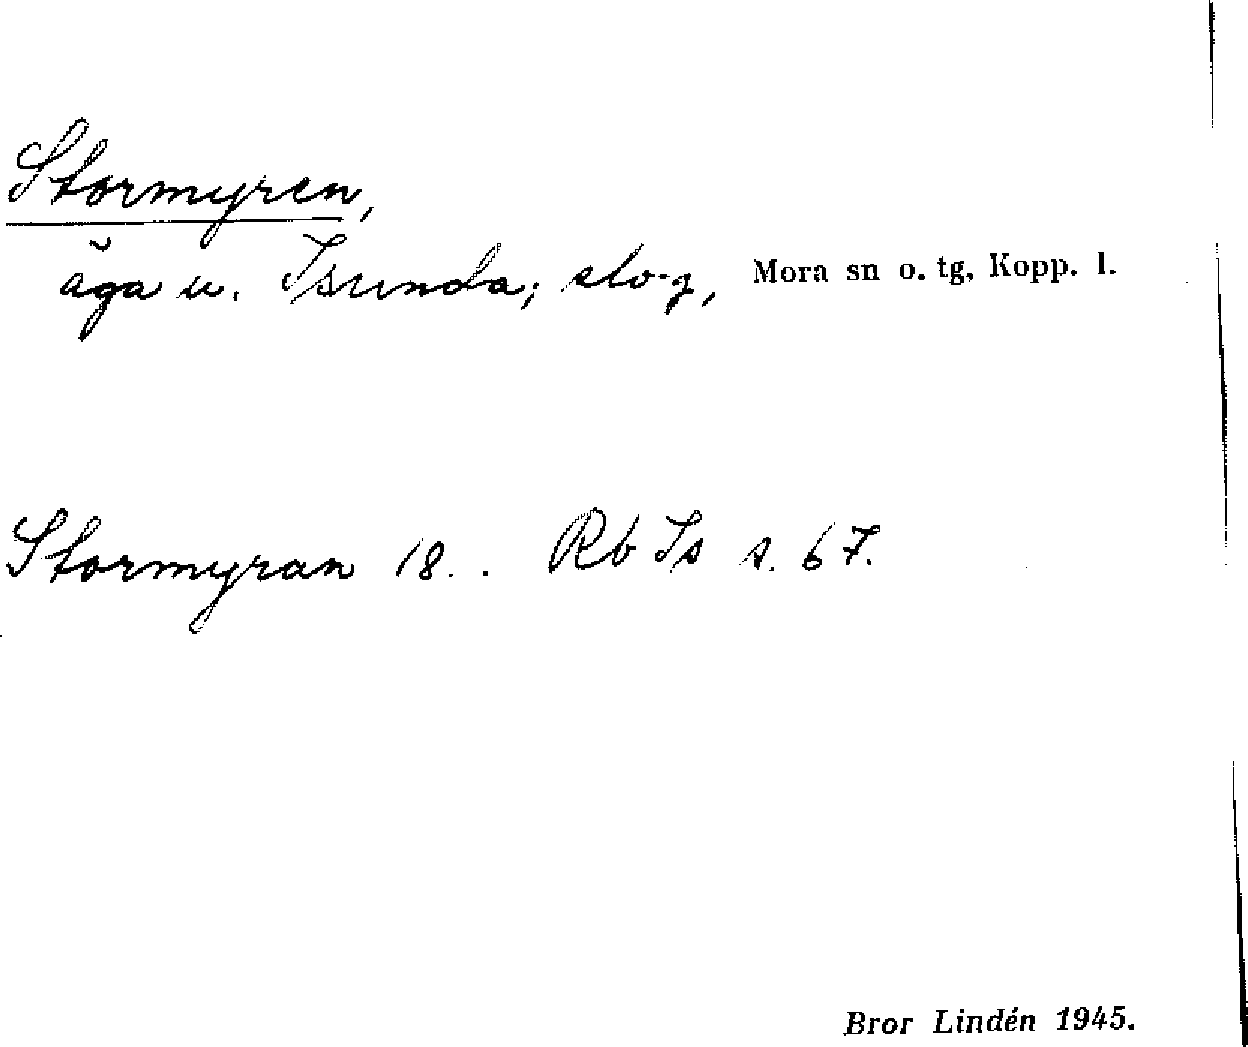 Stormyren,
äga u. Isunda; slog, Mora sn o. tg, Kopp. l.
Stormyran 18.. Rb Is s. 67.
Bror Lindén 1945.